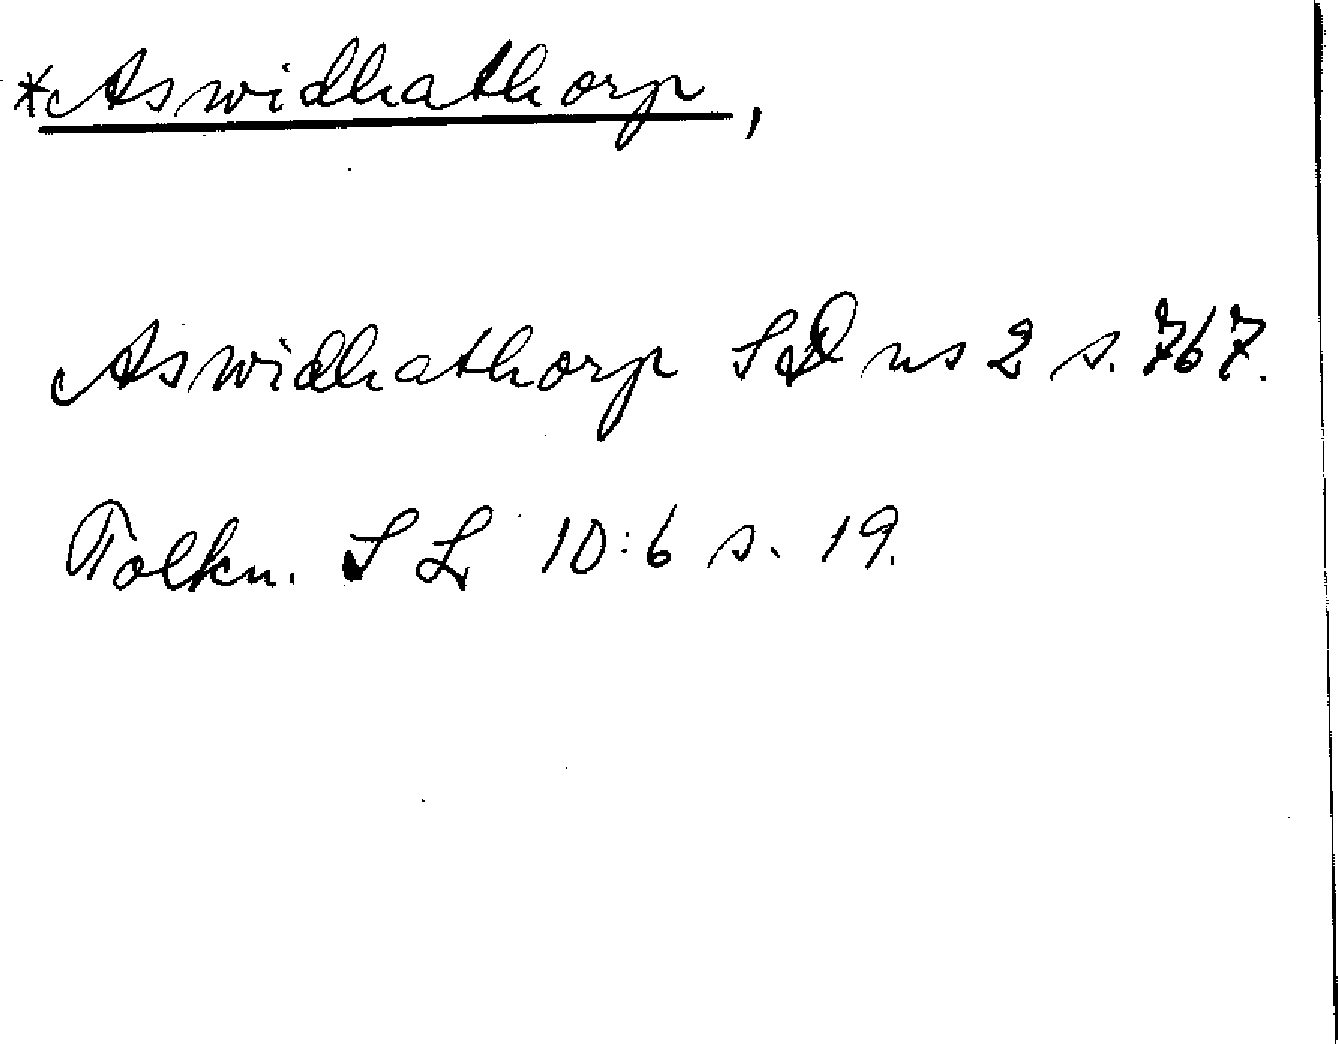 *Aswidhathorp,
Aswidhathorp SD ns 2 s. 767.
Tolkn. SL 10:6 s. 19.